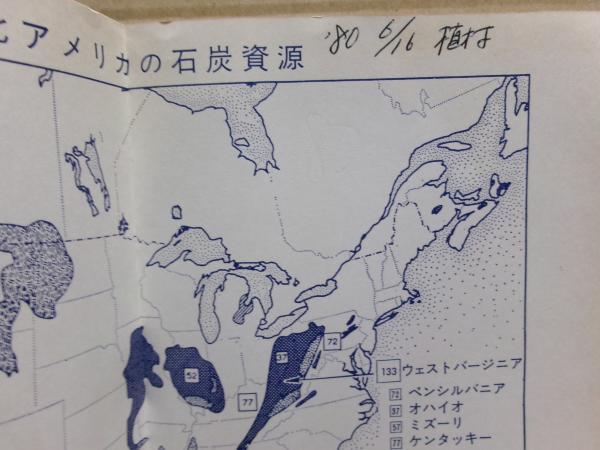 北アメリカの石炭資源 '80 6/16 植村
37
72
52
77
133 ウェストバージニア
72 ペンシルバニア
37 オハイオ
57 ミズーリ
77 ケンタッキー